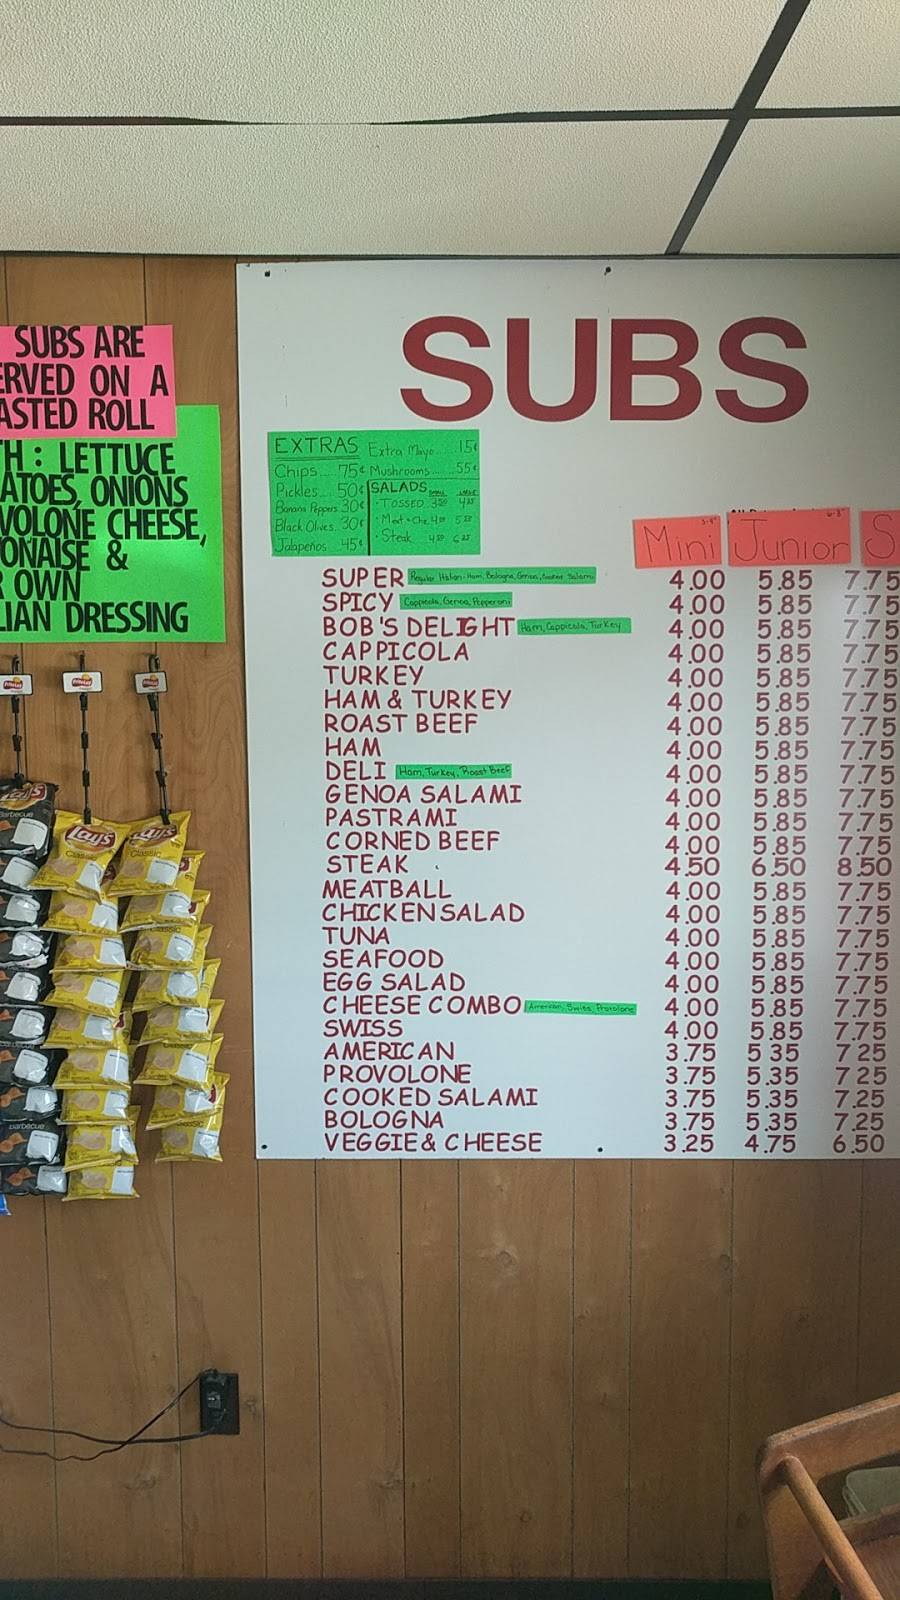 SUBS ARE
ERVED ON A
ASTED ROLL
TH: LETTUCE
ATOES, ONIONS
VOLONE CHEESE,
ONAISE &
R OWN
LIAN DRESSING
SUBS
EXTRAS
Chips... 75¢
Pickles... 50¢
Banana Peppers 30¢
Black Olives.. 30¢
Jalapeños 45¢
Extra Mayo 15¢
Mushrooms 55¢
SALADS
TOSSED
Meat + Che.
Steak
Mini Junior S
SUPER Regular Italian-Ham, Bologna, Genoa, Cooked Salami 4.00 5.85 7.75
SPICY Cappicola, Genoa, Pepperoni 4.00 5.85 7.75
BOB'S DELIGHT Ham, Cappicola, Turkey 4.00 5.85 7.75
CAPPICOLA 4.00 5.85 7.75
TURKEY 4.00 5.85 7.75
HAM & TURKEY 4.00 5.85 7.75
ROAST BEEF 4.00 5.85 7.75
HAM 4.00 5.85 7.75
DELI Ham, Turkey, Roast Beef 4.00 5.85 7.75
GENOA SALAMI 4.00 5.85 7.75
PASTRAMI 4.00 5.85 7.75
CORNED BEEF 4.00 5.85 7.75
STEAK 4.50 6.50 8.50
MEATBALL 4.00 5.85 7.75
CHICKEN SALAD 4.00 5.85 7.75
TUNA 4.00 5.85 7.75
SEAFOOD 4.00 5.85 7.75
EGG SALAD 4.00 5.85 7.75
CHEESE COMBO American, Swiss, Provolone 4.00 5.85 7.75
SWISS 4.00 5.85 7.75
AMERICAN 3.75 5.35 7.25
PROVOLONE 3.75 5.35 7.25
COOKED SALAMI 3.75 5.35 7.25
BOLOGNA 3.75 5.35 7.25
VEGGIE & CHEESE 3.25 4.75 6.50
Barbecue
Lay's
Classic
Lay's
Classic
Barbecue